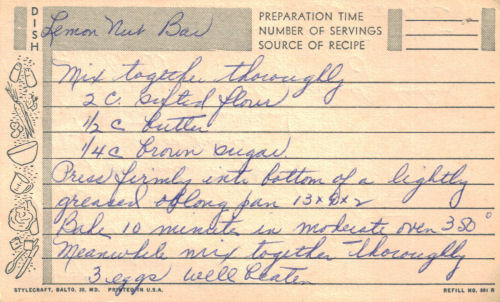 DISH
Lemon Nut Bar
PREPARATION TIME
NUMBER OF SERVINGS
SOURCE OF RECIPE
Mix together thoroughly
2 C. sifted flour
1/2 c butter
1/4 c brown sugar
Press firmly into bottom of a lightly
greased oblong pan 13x9x2
Bake 10 minutes in moderate oven 350°
Meanwhile mix together thoroughly
3 eggs well beaten
STYLECRAFT, BALTO. 30, MD. PRINTED IN U.S.A. REFILL NO. 881 R